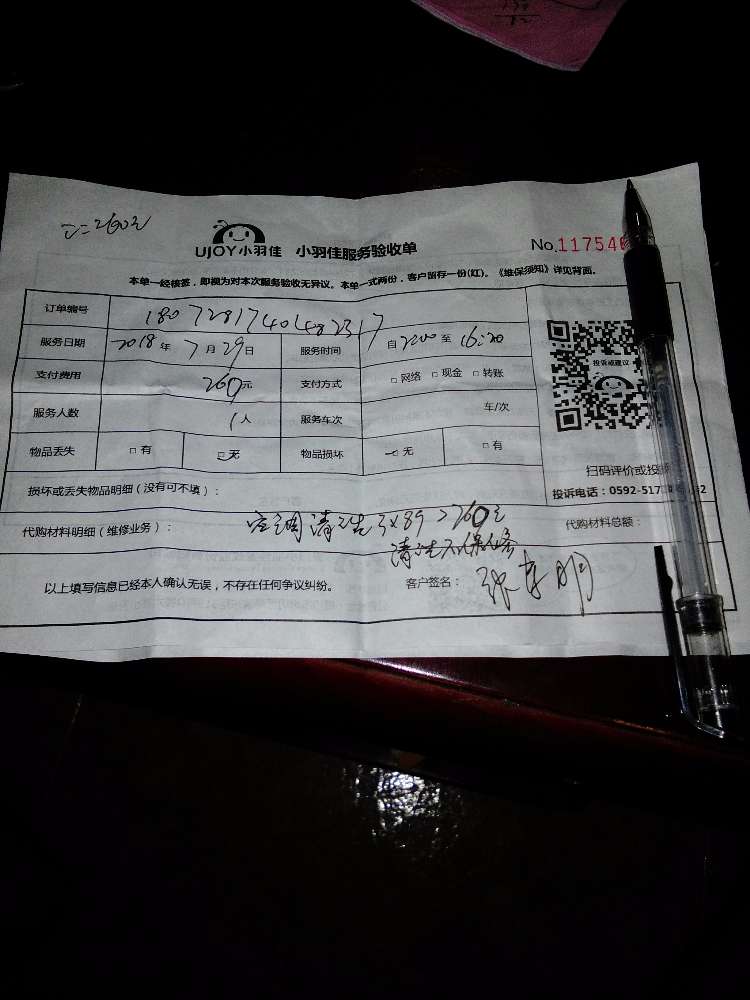 UJOY小羽佳 小羽佳服务验收单
No.11754
本单一经核签，即视为对本次服务验收无异议。本单一式两份，客户留存一份(红)。《维保须知》详见背面。
订单编号
服务日期 2018 年 7 月 29 日 服务时间 自 至 16:20
支付费用 260 元 支付方式 □ 网络 □ 现金 □ 转账
服务人数 1 人 服务车次 车/次
物品丢失 □ 有 □ 无 物品损坏 □ 无 □ 有
投诉或建议
扫码评价或投
投诉电话：0592-517
损坏或丢失物品明细（没有可不填）：
代购材料明细（维修业务）： 空调清洗 3×89 260元 代购材料总额：
清洗不保修
以上填写信息已经本人确认无误，不存在任何争议纠纷。 客户签名：